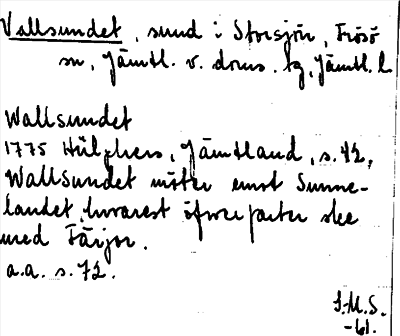 Vallsundet, sund i Storsjön, Frösö
sn, Jämtl. v. doms. tg, Jämtl. l.
Wallsundet
1775 Hülphers, Jämtland, s. 42,
Wallsundet möter emot Sunne-
landet, hvarest öfverfarter skee
med Färjor.
a.a. s. 72.
S.M.S.
-61.